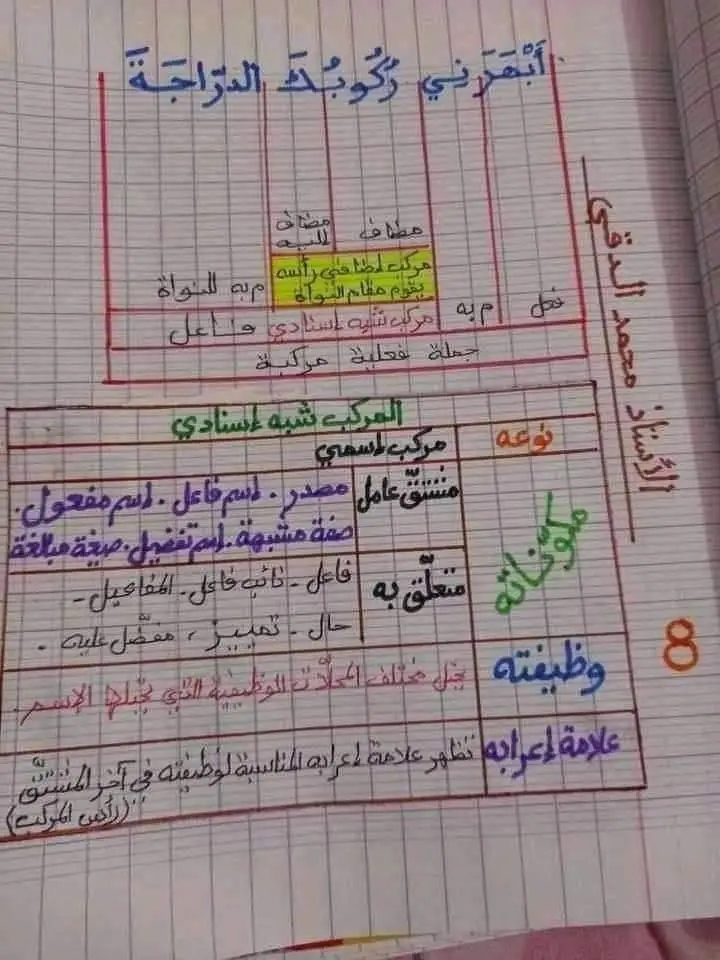 أَبْهَرَني رُكُوبُكَ الدرّاجَةَ
مضاف مضاف إليه
فعل م به مركب إضافي رأسه يقوم مقام النواة م به للنواة
مركب شبه إسنادي فاعل
جملة فعلية مركبة
الأستاذ محمد الدقي
المركب شبه إسنادي
نوعه مركب اسمي
مكوّناته مشتقّ عامل مصدر . اسم فاعل . اسم مفعول .
صفة مشبهة . اسم تفضيل . صيغة مبالغة
متعلّق به فاعل - نائب فاعل - المفاعيل -
حال - تمييز ، مفضّل عليه .
وظيفته يحل مختلف المحلاّت الوظيفية التي يحلها الإسم .
علامة إعرابه تظهر علامة إعرابه المناسبة لوظيفته في آخر المشتقّ
"(رأس المركب)
8